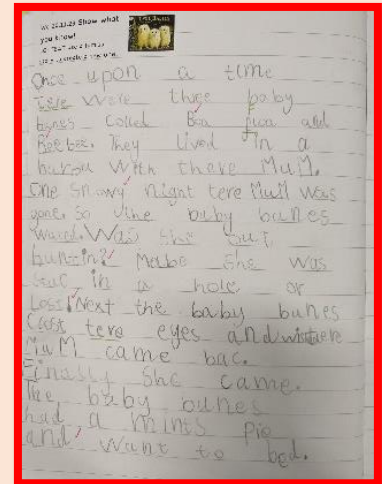 Show what
you know!
Once upon a time
tere were three baby
bunes called Boo
They lived in a
with there MuM.
One snowy night tere MuM was
gone. So the baby bunes
Was she out
huntin? Mabe she was
in a hole or
Loss! Next the baby bunes
tere eyes and
MuM came bac.
Finally She came.
The baby bunes
had a mints pie
and want to bed.